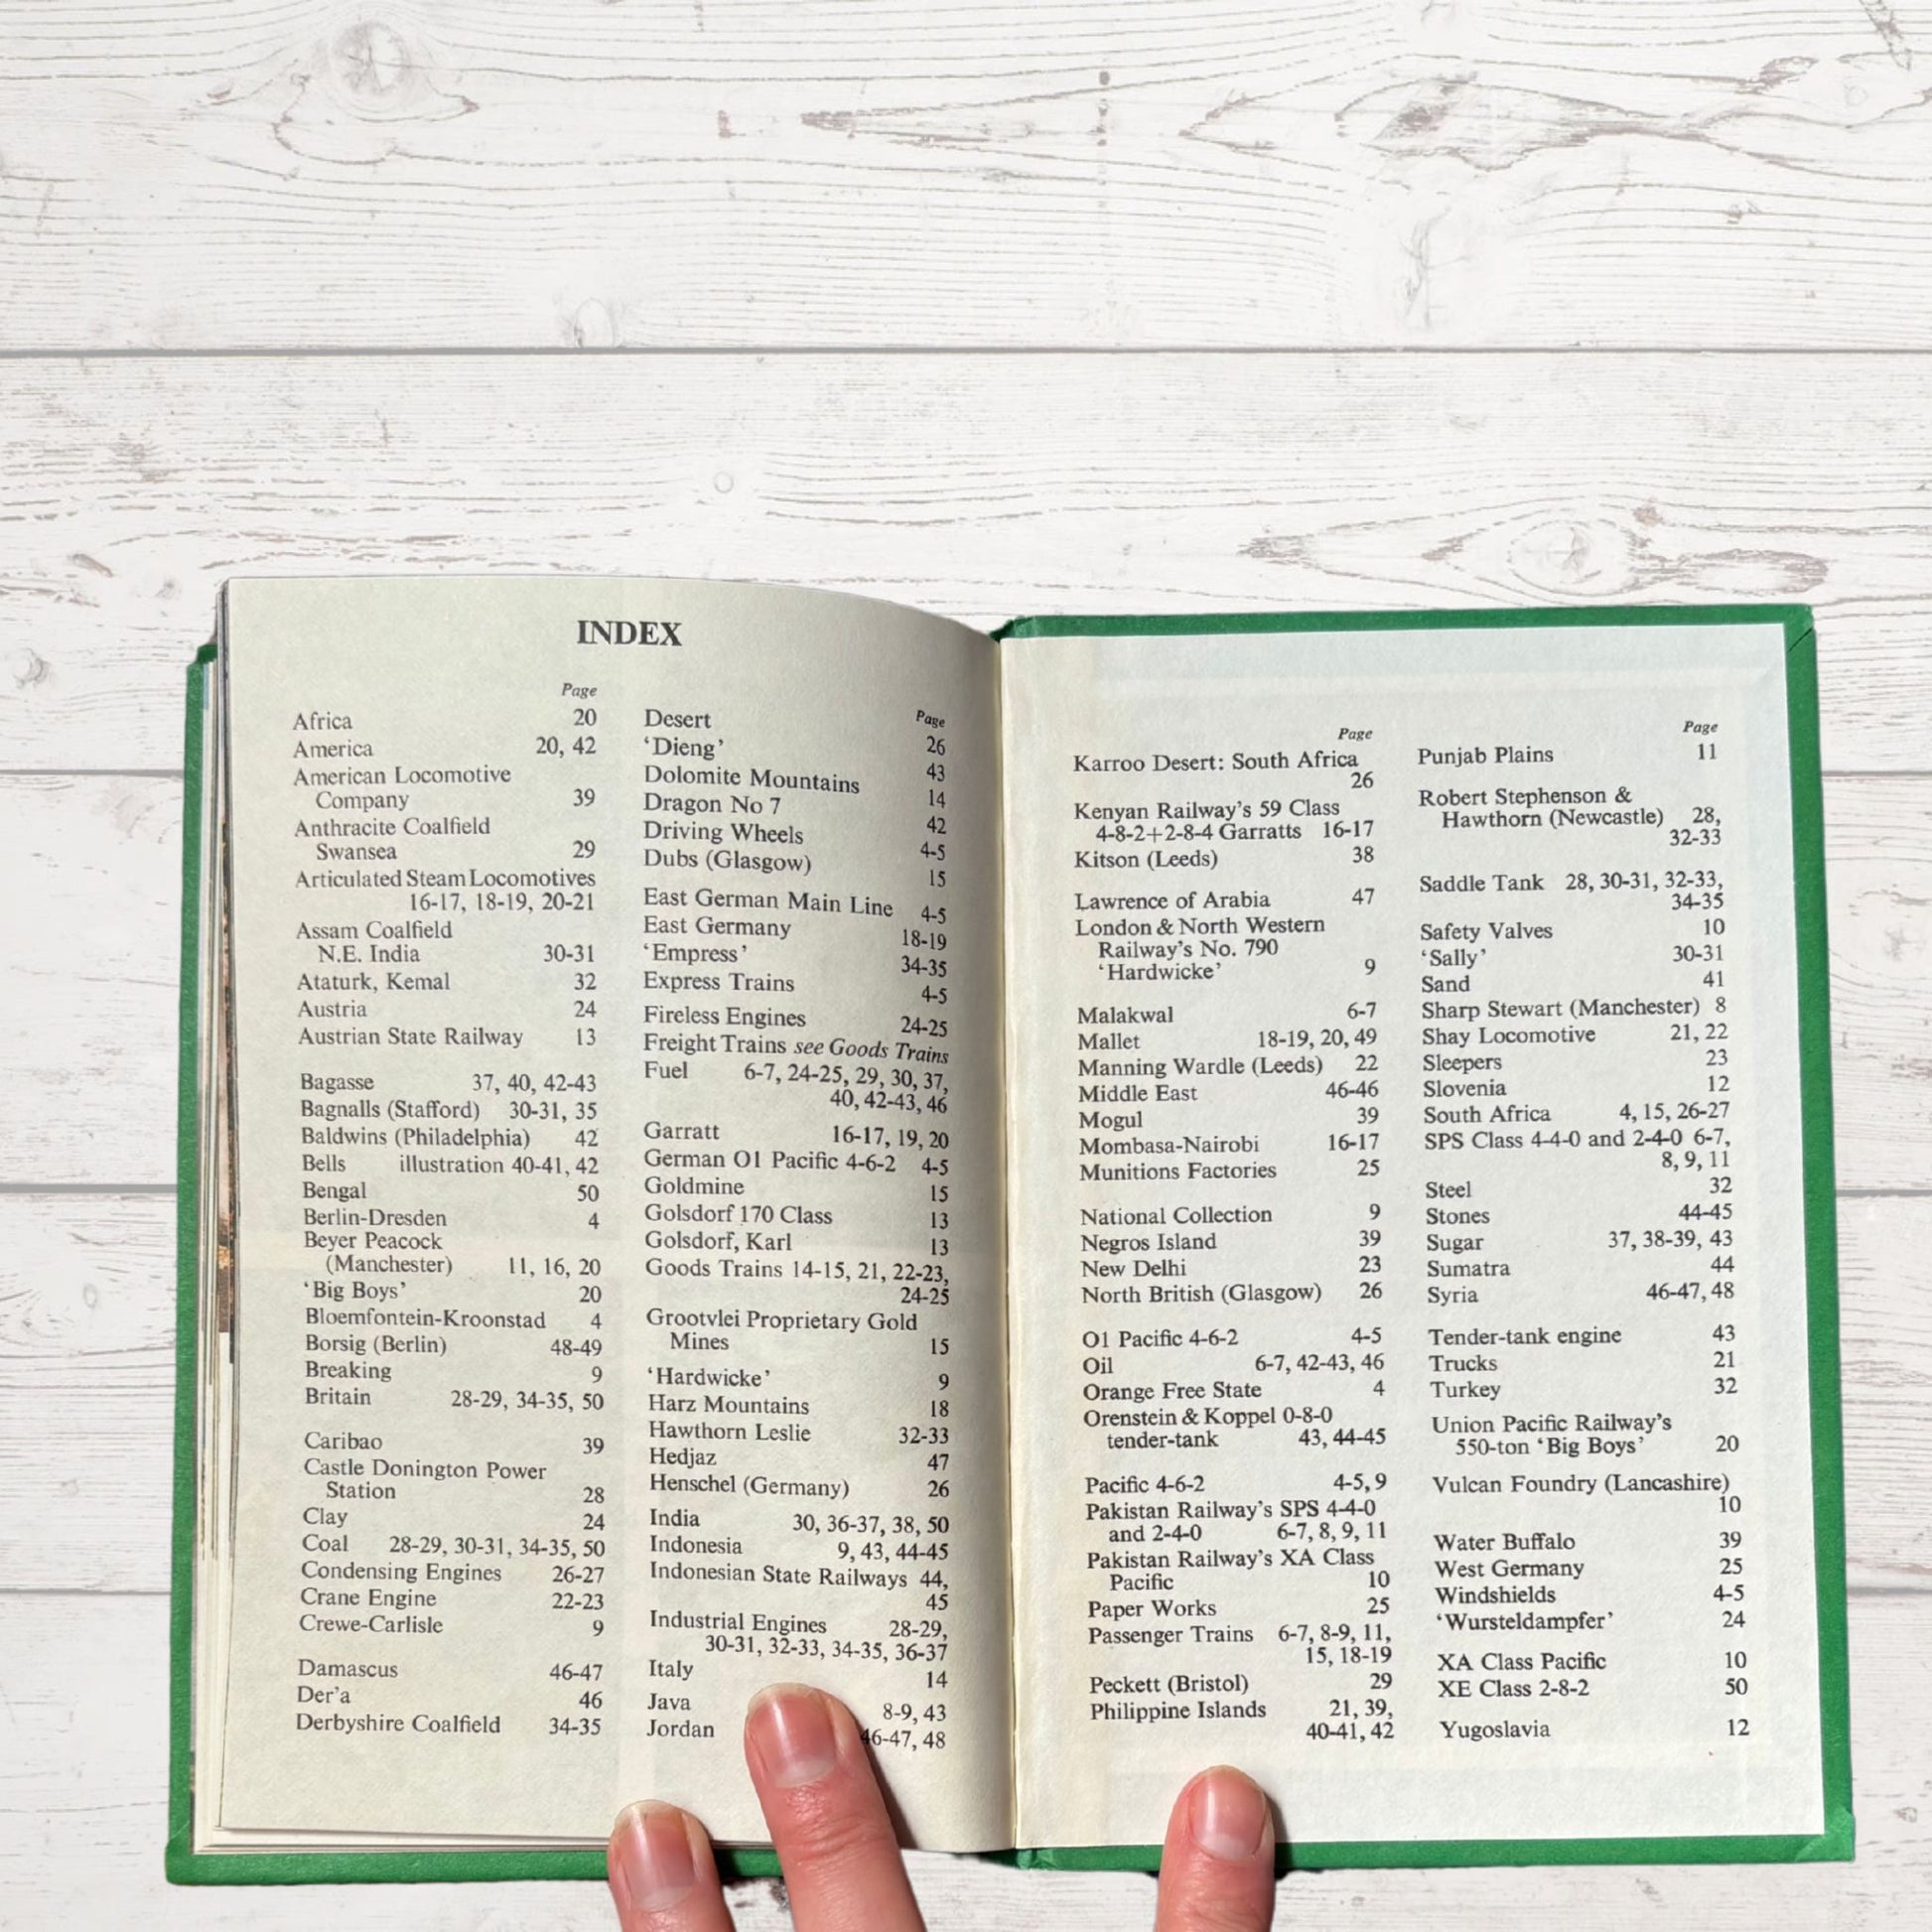 INDEX
Page
Africa 20
America 20, 42
American Locomotive
Company 39
Anthracite Coalfield
Swansea 29
Articulated Steam Locomotives
16-17, 18-19, 20-21
Assam Coalfield
N.E. India 30-31
Ataturk, Kemal 32
Austria 24
Austrian State Railway 13
Bagasse 37, 40, 42-43
Bagnalls (Stafford) 30-31, 35
Baldwins (Philadelphia) 42
Bells illustration 40-41, 42
Bengal 50
Berlin-Dresden 4
Beyer Peacock
(Manchester) 11, 16, 20
‘Big Boys’ 20
Bloemfontein-Kroonstad 4
Borsig (Berlin) 48-49
Breaking 9
Britain 28-29, 34-35, 50
Caribao 39
Castle Donington Power
Station 28
Clay 24
Coal 28-29, 30-31, 34-35, 50
Condensing Engines 26-27
Crane Engine 22-23
Crewe-Carlisle 9
Damascus 46-47
Der’a 46
Derbyshire Coalfield 34-35
Page
Desert 26
‘Dieng’ 43
Dolomite Mountains 14
Dragon No 7 42
Driving Wheels 4-5
Dubs (Glasgow) 15
East German Main Line 4-5
East Germany 18-19
‘Empress’ 34-35
Express Trains 4-5
Fireless Engines 24-25
Freight Trains see Goods Trains
Fuel 6-7, 24-25, 29, 30, 37,
40, 42-43, 46
Garratt 16-17, 19, 20
German O1 Pacific 4-6-2 4-5
Goldmine 15
Golsdorf 170 Class 13
Golsdorf, Karl 13
Goods Trains 14-15, 21, 22-23,
24-25
Grootvlei Proprietary Gold
Mines 15
‘Hardwicke’ 9
Harz Mountains 18
Hawthorn Leslie 32-33
Hedjaz 47
Henschel (Germany) 26
India 30, 36-37, 38, 50
Indonesia 9, 43, 44-45
Indonesian State Railways 44,
45
Industrial Engines 28-29,
30-31, 32-33, 34-35, 36-37
Italy 14
Java 8-9, 43
Jordan 46-47, 48
Page
Karroo Desert: South Africa
26
Kenyan Railway’s 59 Class
4-8-2+2-8-4 Garratts 16-17
Kitson (Leeds) 38
Lawrence of Arabia 47
London & North Western
Railway’s No. 790
‘Hardwicke’ 9
Malakwal 6-7
Mallet 18-19, 20, 49
Manning Wardle (Leeds) 22
Middle East 46-46
Mogul 39
Mombasa-Nairobi 16-17
Munitions Factories 25
National Collection 9
Negros Island 39
New Delhi 23
North British (Glasgow) 26
O1 Pacific 4-6-2 4-5
Oil 6-7, 42-43, 46
Orange Free State 4
Orenstein & Koppel 0-8-0
tender-tank 43, 44-45
Pacific 4-6-2 4-5, 9
Pakistan Railway’s SPS 4-4-0
and 2-4-0 6-7, 8, 9, 11
Pakistan Railway’s XA Class
Pacific 10
Paper Works 25
Passenger Trains 6-7, 8-9, 11,
15, 18-19
Peckett (Bristol) 29
Philippine Islands 21, 39,
40-41, 42
Page
Punjab Plains 11
Robert Stephenson &
Hawthorn (Newcastle) 28,
32-33
Saddle Tank 28, 30-31, 32-33,
34-35
Safety Valves 10
‘Sally’ 30-31
Sand 41
Sharp Stewart (Manchester) 8
Shay Locomotive 21, 22
Sleepers 23
Slovenia 12
South Africa 4, 15, 26-27
SPS Class 4-4-0 and 2-4-0 6-7,
8, 9, 11
Steel 32
Stones 44-45
Sugar 37, 38-39, 43
Sumatra 44
Syria 46-47, 48
Tender-tank engine 43
Trucks 21
Turkey 32
Union Pacific Railway’s
550-ton ‘Big Boys’ 20
Vulcan Foundry (Lancashire)
10
Water Buffalo 39
West Germany 25
Windshields 4-5
‘Wursteldampfer’ 24
XA Class Pacific 10
XE Class 2-8-2 50
Yugoslavia 12